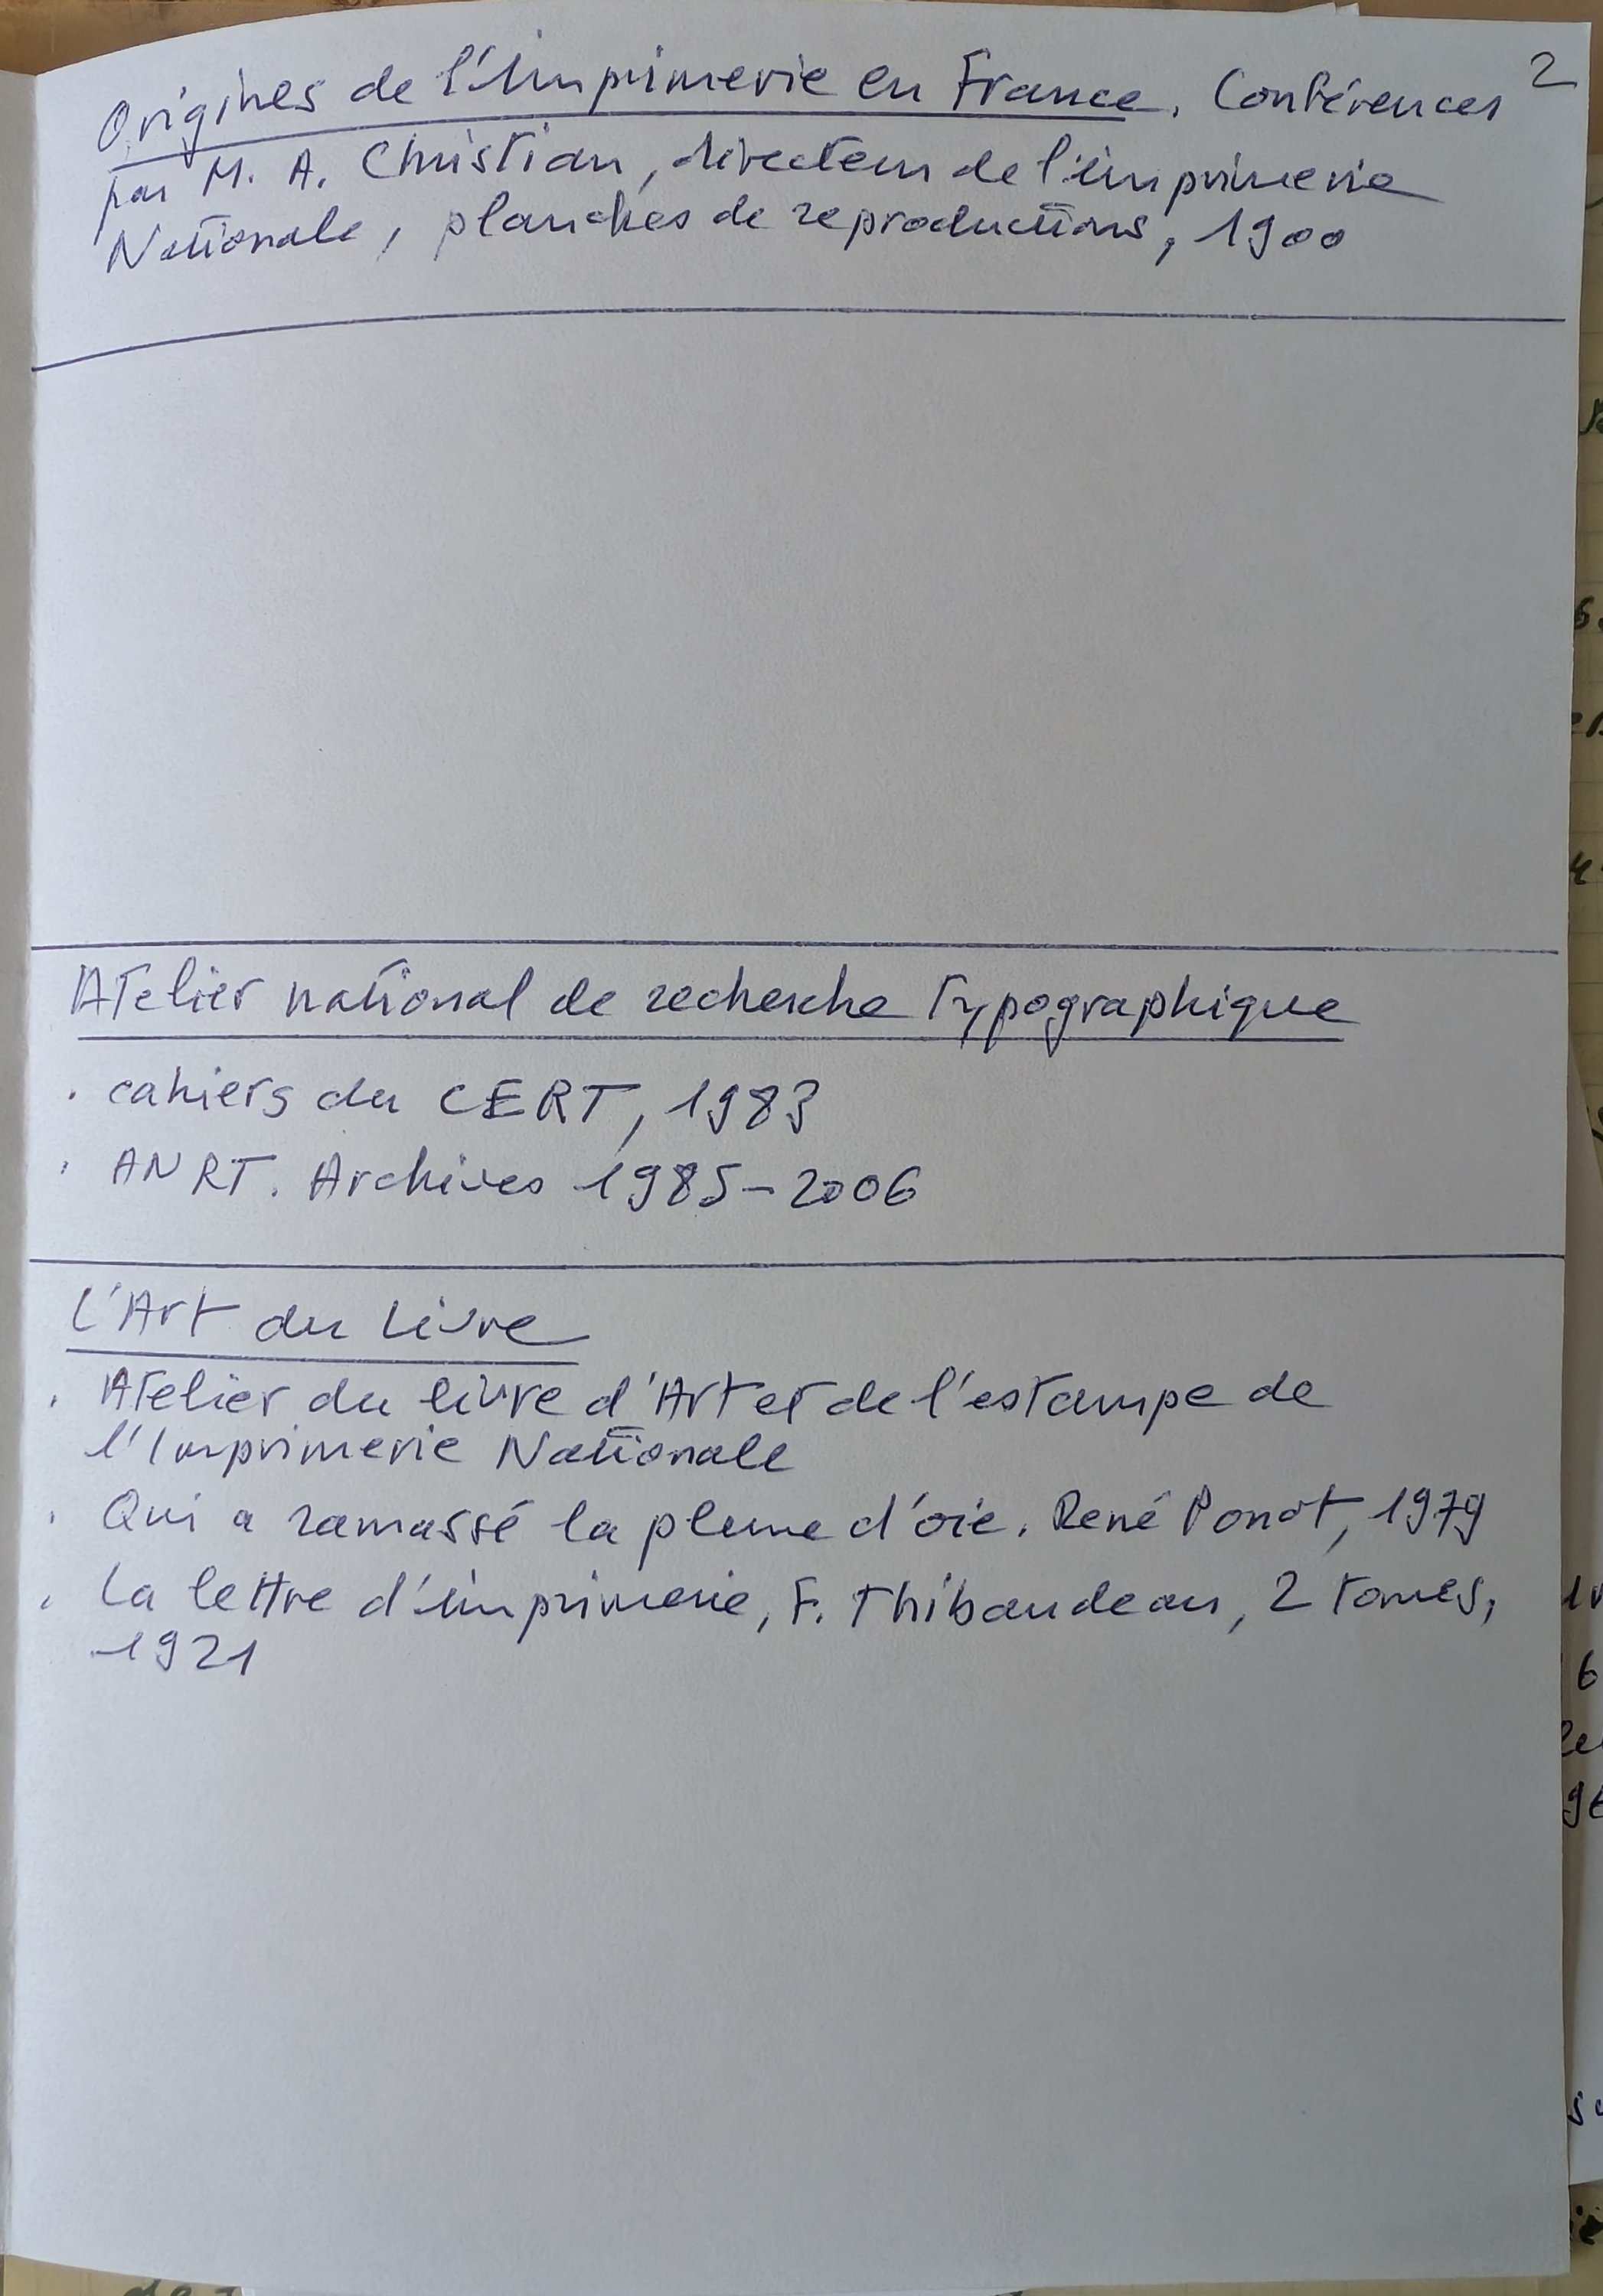 Origines de l'Imprimerie en France. Conférences 2
par M. A. Christian, directeur de l'imprimerie
Nationale, planches de reproductions, 1900
Atelier national de recherche Typographique
· cahiers du CERT, 1983
· ANRT. Archives 1985-2006
L'Art du Livre
· Atelier du livre d'Art et de l'estampe de
l'Imprimerie Nationale
· Qui a ramassé la plume d'oie. René Ponot, 1979
· La lettre d'imprimerie, F. Thibaudeau, 2 tomes,
1921